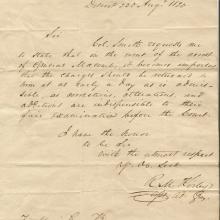 Detroit 22d Augt 1820
Sir
Col. Smith requests me
to state that in the event of the arrest
of General Macomb, it becomes important
that the charges should be returned to
him at as early a day as is advis-
able, as corrections, alterations and
additions are indispensable to their
fair examination before the Court.
I have the honor
to be Sir
with the utmost respect
yr. Ob. Sert
R. M.